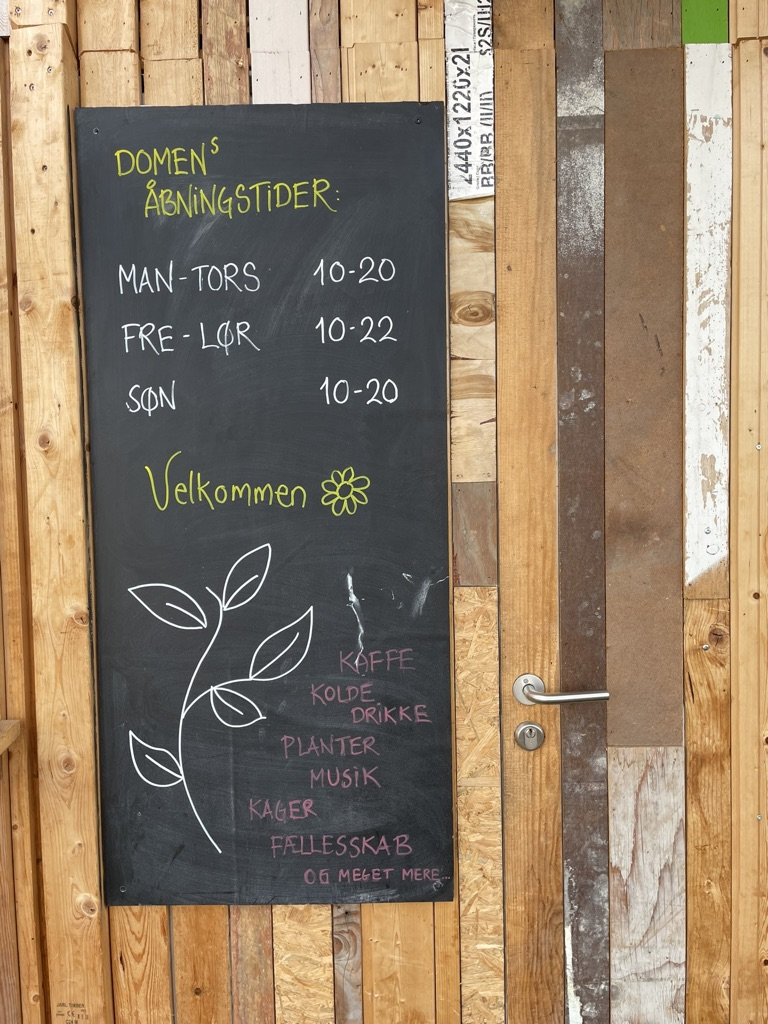 DOMENS
ÅBNINGSTIDER:
MAN-TORS 10-20
FRE-LØR 10-22
SØN 10-20
Velkommen
KAFFE
KOLDE
DRIKKE
PLANTER
MUSIK
KAGER
FÆLLESSKAB
OG MEGET MERE...
2440x1220x21